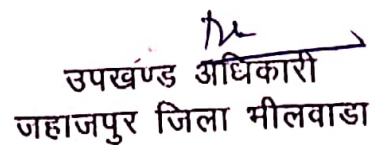 उपखंण्ड अधिकारी
जहाजपुर जिला भीलवाडा